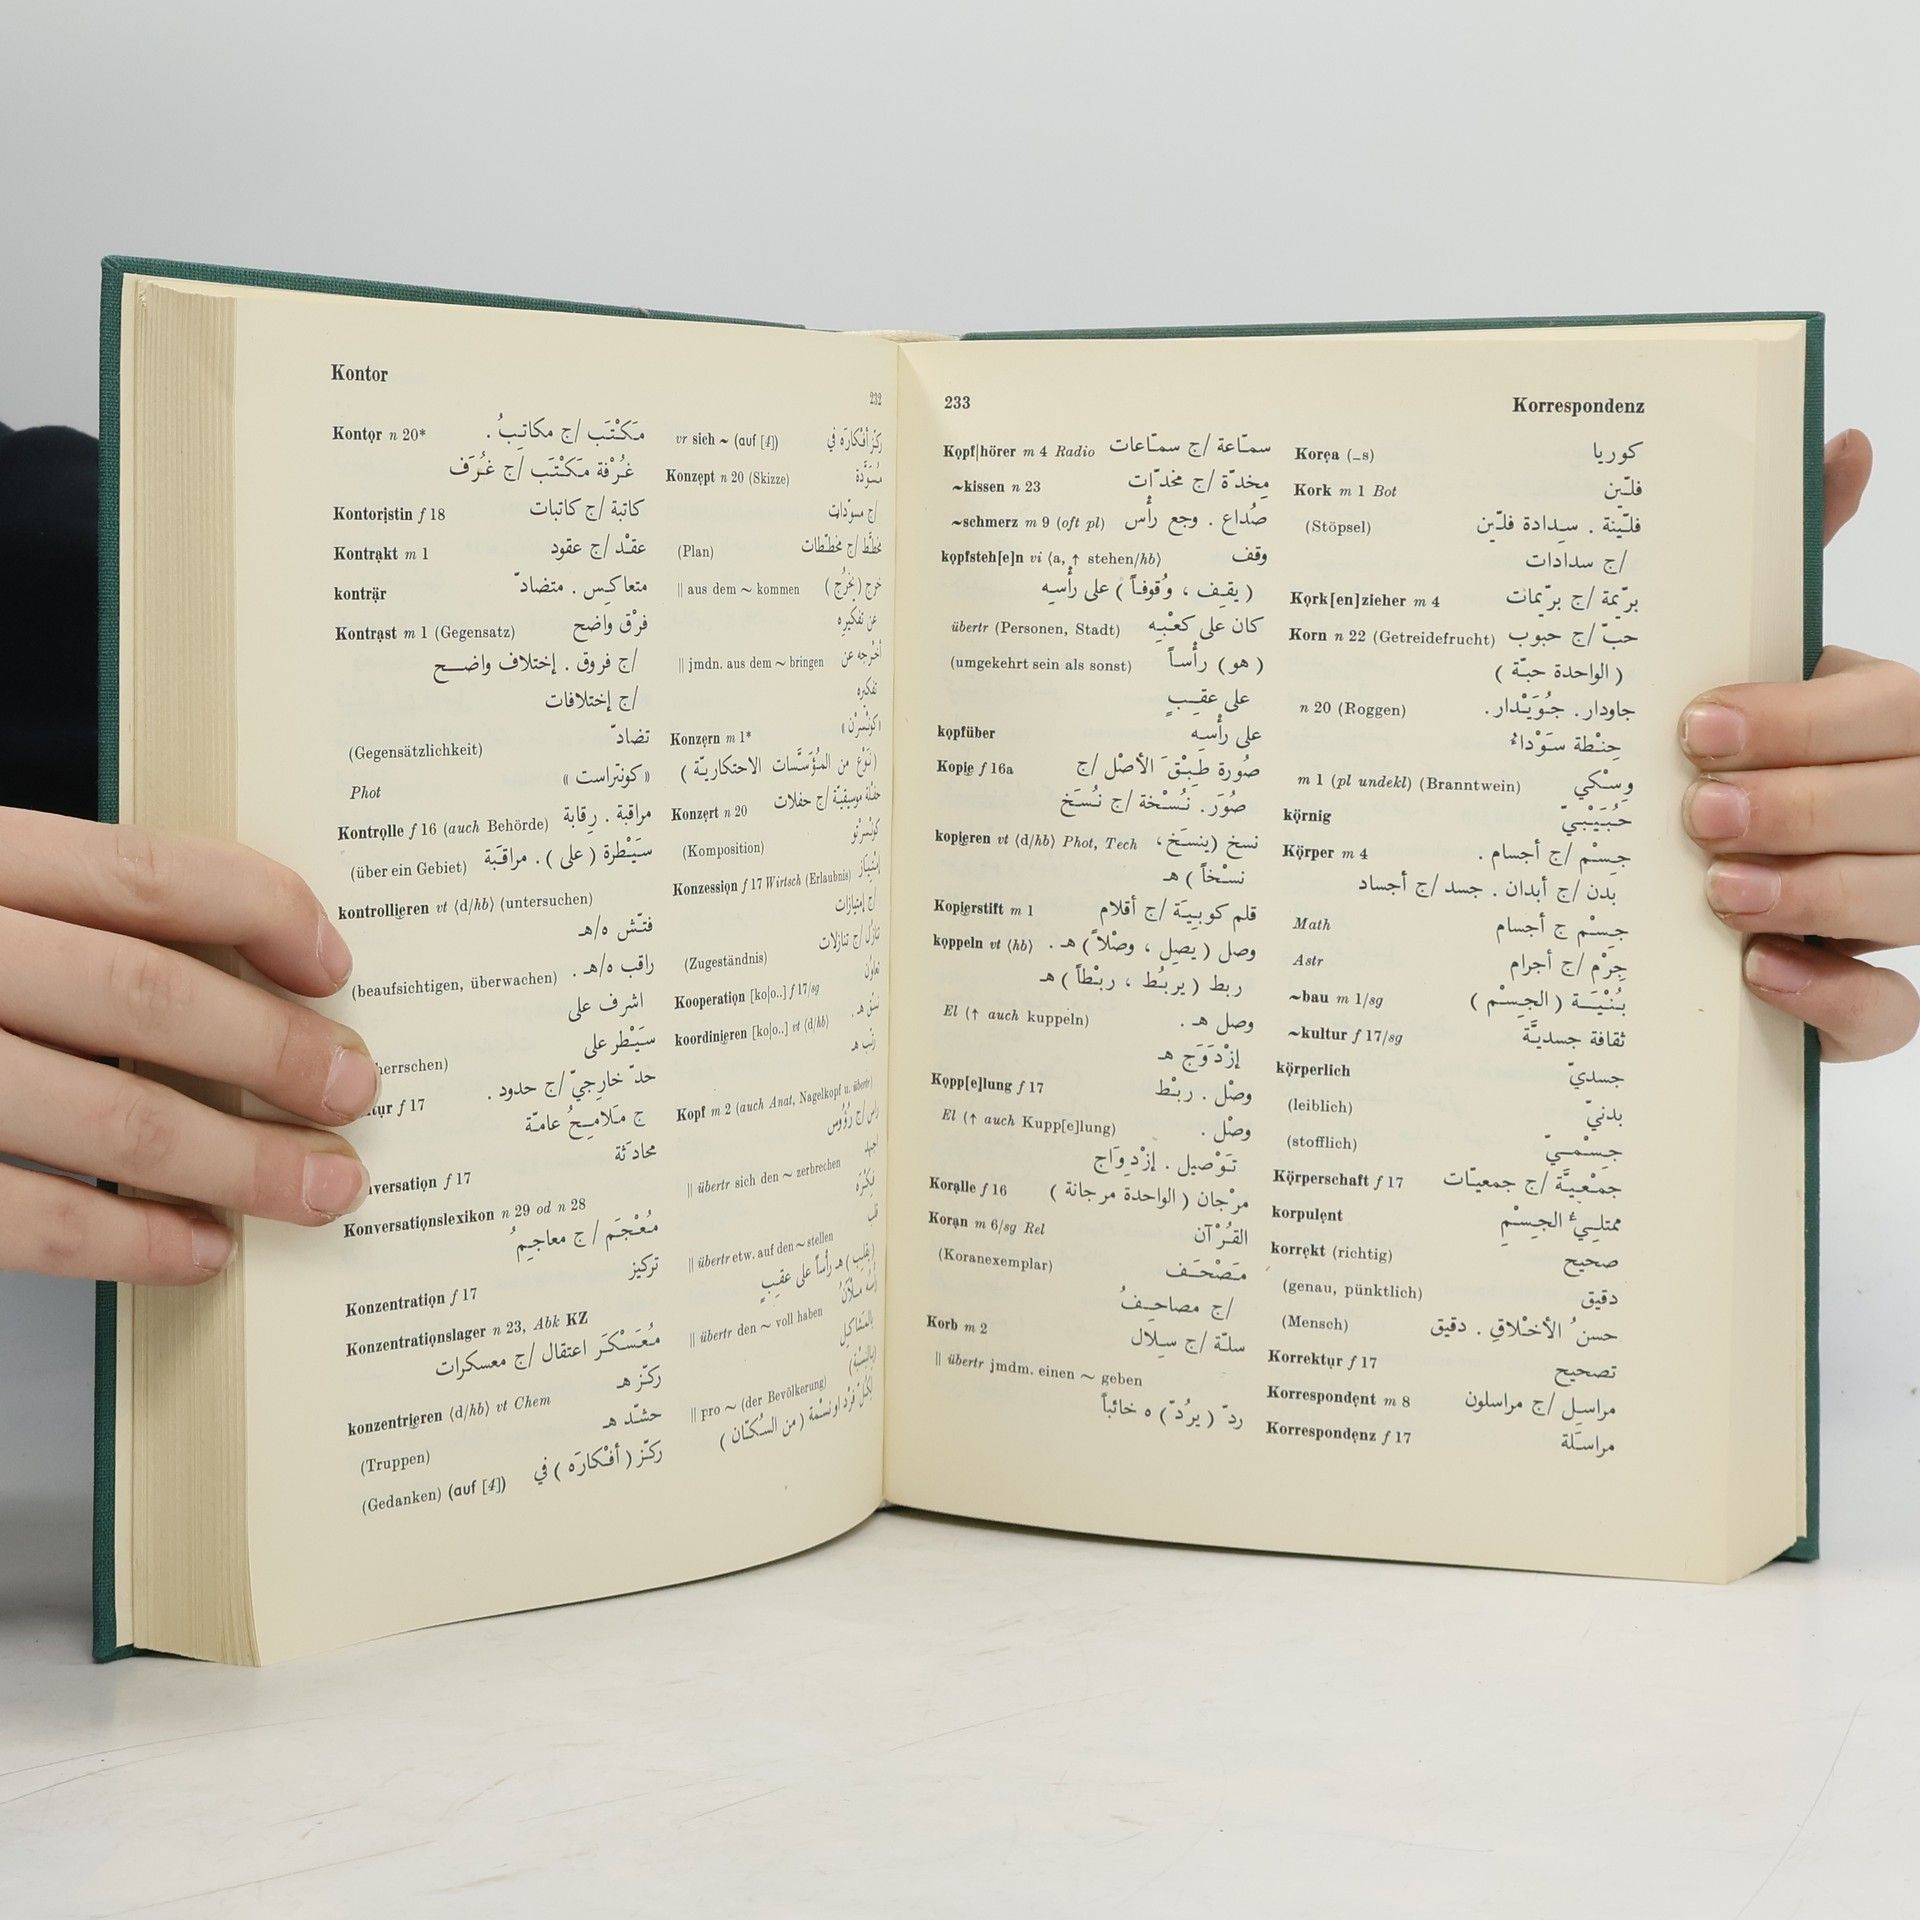 Kontor
232
Kontor n 20* مَكْتَب /ج مكاتِبُ .
غُرْفة مَكْتَب /ج غُرَف
Kontoristin f 18 كاتبة /ج كاتبات
Kontrakt m 1 عقْد /ج عقود
konträr متعاكِس . متضادّ
Kontrast m 1 (Gegensatz) فرْق واضح
/ج فروق . إختلاف واضح
/ج إختلافات
(Gegensätzlichkeit) تضادّ
Phot « كونتراست »
Kontrolle f 16 (auch Behörde) مراقبة . رِقابة
(über ein Gebiet) سَيْطرة ( على ) . مراقَبة
kontrollieren vt ⟨d/hb⟩ (untersuchen)
فتّش ه/هـ
(beaufsichtigen, überwachen) راقب ه/هـ .
اشرف على
herrschen) سَيْطر على
tur f 17 حدّ خارِجيّ /ج حدود .
ج مَلامِحُ عامّة
versation f 17 محادَثة
Konversationslexikon n 29 od n 28
مُعْجَم /ج معاجِيمُ
Konzentration f 17 تركيز
Konzentrationslager n 23, Abk KZ
مُعَسْكَر اعتقال /ج معسكرات
konzentrieren ⟨d/hb⟩ vt Chem ركّز هـ
(Truppen) حشّد هـ
(Gedanken) (auf [4]) ركّز ( أفْكارَه ) في
vr sich ~ (auf [4]) ركّز أفْكارَه في
Konzept n 20 (Skizze) مُسَوَّدة
/ج مسوّدات
(Plan) مخطّط /ج مخطّطات
‖ aus dem ~ kommen خرج ( يخرُج )
عن تفكيرِه
‖ jmdn. aus dem ~ bringen أخْرجه عن
تفكيره
Konzern m 1* « كونْسرْن »
(نَوْع من المُؤَسَّسات الاحتكاريّة )
Konzert n 20 حفلة موسيقيّة /ج حفلات
(Komposition) كونْسرْتو
Konzession f 17 Wirtsch (Erlaubnis) إمْتِياز
/ج إمتيازات
(Zugeständnis) تنازُل /ج تنازلات
Kooperation [ko|o..] f 17/sg تعاوُن
koordinieren [ko|o..] vt ⟨d/hb⟩ نسّق هـ .
رتّب هـ
Kopf m 2 (auch Anat, Nagelkopf u. übertr)
راس /ج رُؤُوس
‖ übertr sich den ~ zerbrechen اجهد
فِكْرَه
‖ übertr etw. auf den ~ stellen قلب
(يقلِب) هـ رأساً على عقِبٍ
‖ übertr den ~ voll haben رأسُه مَلآنُ
بالمَشاكِل
‖ pro ~ (der Bevölkerung) (بالنِسْبة)
لكلّ فرْد او نسْمة ( من السُكّان )
233
Korrespondenz
Kopf|hörer m 4 Radio سمّاعة /ج سمّاعات
~kissen n 23 مِخدّة /ج مخدّات
~schmerz m 9 (oft pl) صُداع . وجع رأْس
kopfsteh[e]n vi ⟨a, ↑ stehen/hb⟩ وقف
( يقِف ، وُقوفاً ) على رأْسِه
übertr (Personen, Stadt) كان على كعْبِه
(umgekehrt sein als sonst) ( هو ) رأْساً
على عقِبٍ
kopfüber على رأْسِه
Kopie f 16a صُورة طِبْقَ الأصْل /ج
صُوَر. نُسْخة /ج نُسَخ
kopieren vt ⟨d/hb⟩ Phot, Tech نسخ (ينسَخ ،
نسْخاً ) هـ
Kopierstift m 1 قلم كوبِيَة /ج أقلام
koppeln vt ⟨hb⟩ وصل ( يصِل ، وصْلاً ) هـ .
ربط ( يربُط ، ربْطاً ) هـ
El (↑ auch kuppeln) وصل هـ .
إزْدَوَج هـ
Kopp[e]lung f 17 وصْل . ربْط
El (↑ auch Kupp[e]lung) وصْل .
تَوْصيل . إزْدِوَاج
Koralle f 16 مرْجان ( الواحدة مرجانة )
Koran m 6/sg Rel القُرْآن
(Koranexemplar) مَصْحَف
/ج مصاحِفُ
Korb m 2 سلّة /ج سِلال
‖ übertr jmdm. einen ~ geben
ردّ ( يرُدّ ) ه خائباً
Korea (_s) كوريا
Kork m 1 Bot فلّين
(Stöpsel) فلّينة . سِدادة فلّين
/ج سدادات
Kork[en]zieher m 4 برّيمة /ج برّيمات
Korn n 22 (Getreidefrucht) حبّ /ج حبوب
( الواحدة حبّة )
n 20 (Roggen) جاودار. جُوَيْدار.
حِنْطة سَوْداءُ
m 1 (pl undekl) (Branntwein) وِسْكي
körnig حُبَيْبيّ
Körper m 4 جِسْم /ج أجسام .
بدن /ج أبدان . جسد /ج أجساد
Math جِسْم ج أجسام
Astr جِرْم /ج أجرام
~bau m 1/sg بُنْيَة ( الجِسْم )
~kultur f 17/sg ثقافة جسديَّة
körperlich جسديّ
(leiblich) بدنيّ
(stofflich) جِسْميّ
Körperschaft f 17 جمْعيَّة /ج جمعيّات
korpulent ممتلِىءُ الجِسْمِ
korrekt (richtig) صحيح
(genau, pünktlich) دقيق
(Mensch) حسنُ الأخْلاقِ . دقيق
Korrektur f 17 تصحيح
Korrespondent m 8 مراسِل /ج مراسلون
Korrespondenz f 17 مراسَلة